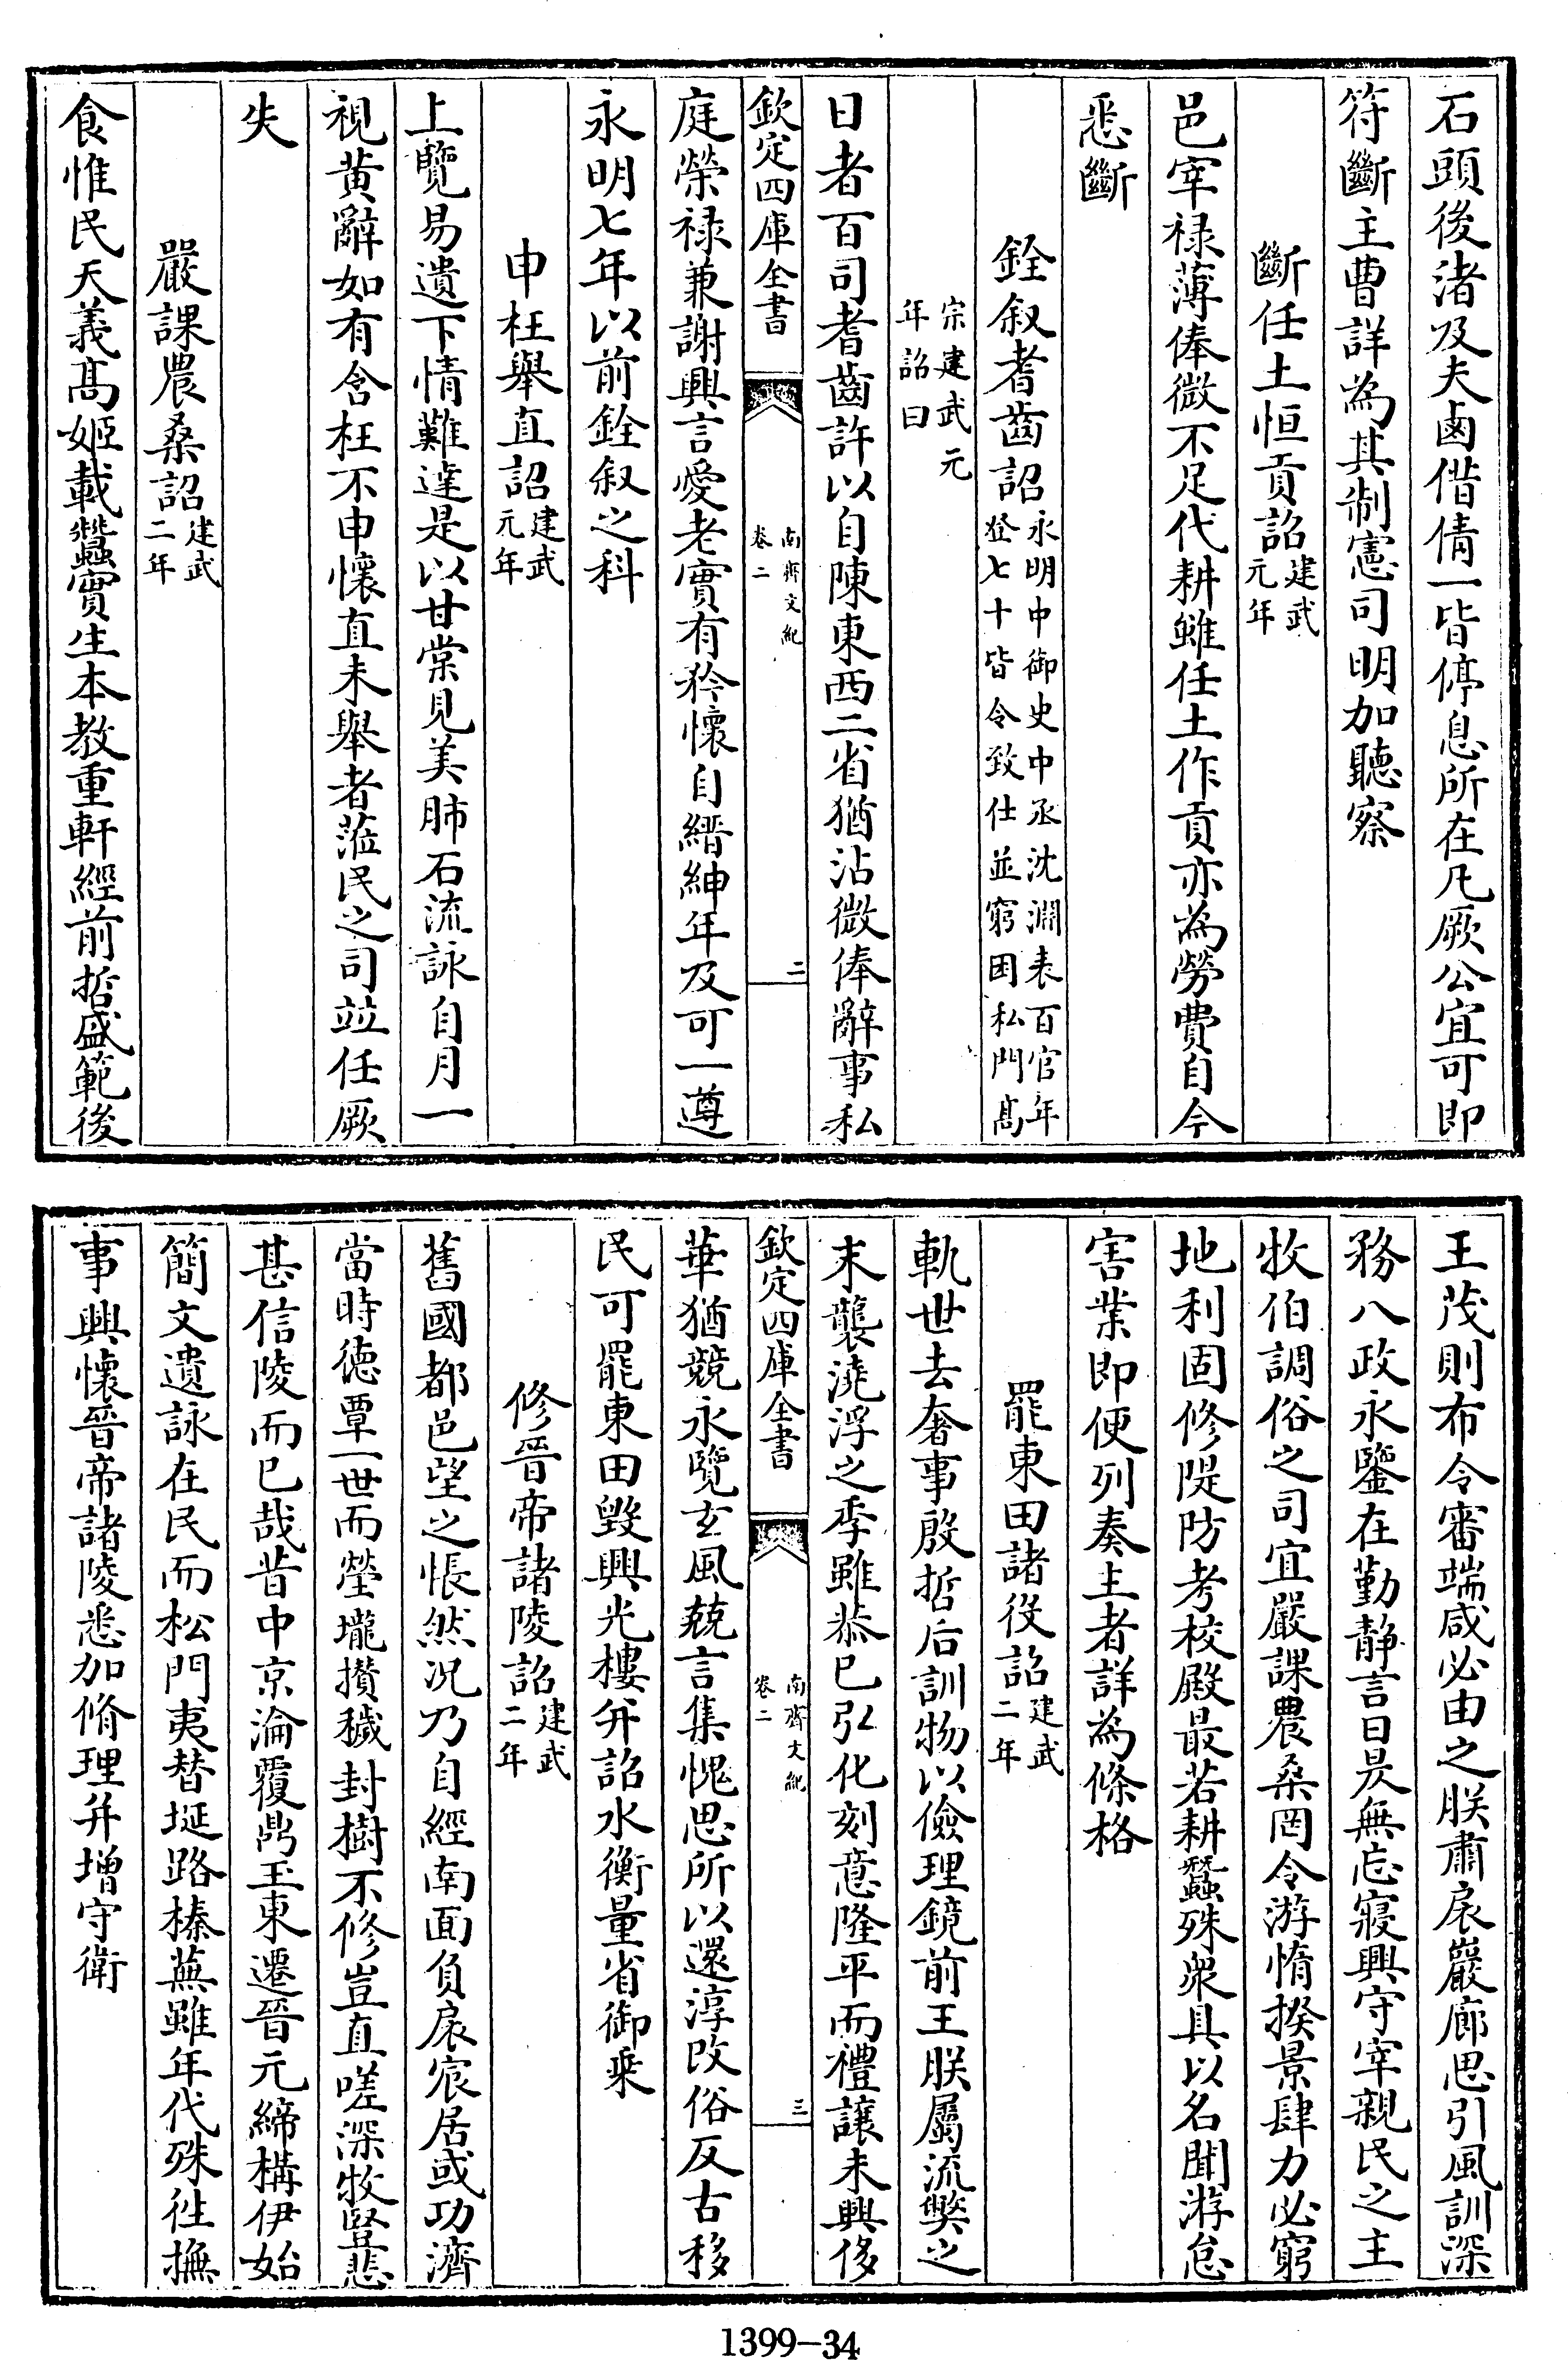 石頭後渚及夫鹵借倩一皆停息所在凡厥公宜可即
符斷主曹詳為其制憲司明加聽察
斷任土恒貢詔建武元年
邑宰禄薄俸微不足代耕雖任土作貢亦為勞費自今
悉斷
銓叙耆齒詔永明中御史中丞沈淵表百官年登七十皆令致仕並窮困私門髙
宗建武元年詔曰
日者百司耆齒許以自陳東西二省猶沾微俸辭事私
欽定四庫全書
南齊文紀
卷二
二
庭榮禄兼謝興言愛老實有矜懷自縉紳年及可一遵
永明七年以前銓叙之科
申枉舉直詔建武元年
上覽易遺下情難達是以甘棠見美肺石流詠自月一
視黄辭如有含枉不申懷直未舉者蒞民之司竝任厥
失
嚴課農桑詔建武二年
食惟民天義髙姬載蠶實生本教重軒經前哲盛範後
王茂則布令審端咸必由之朕肅扆巖廊思引風訓深
務八政永鑒在勤静言日昃無忘寢興守宰親民之主
牧伯調俗之司宜嚴課農桑罔令游惰揆景肆力必窮
地利固修隄防考校殿最若耕蠶殊衆具以名聞游怠
害業即便列奏主者詳為條格
罷東田諸役詔建武二年
軌世去奢事殷哲后訓物以儉理鏡前王朕屬流弊之
末襲澆浮之季雖恭已弘化刻意隆平而禮讓未興侈
欽定四庫全書
南齊文紀
卷二
三
華猶競永覽玄風兢言集愧思所以還淳改俗反古移
民可罷東田毀興光樓并詔水衡量省御乘
修晉帝諸陵詔建武二年
舊國都邑望之悵然况乃自經南面負扆宸居或功濟
當時德覃一世而塋壠攅穢封樹不修豈直嗟深牧豎悲
甚信陵而已哉昔中京淪覆鼎玉東遷晉元締構伊始
簡文遺詠在民而松門夷替埏路榛蕪雖年代殊往撫
事興懷晉帝諸陵悉加脩理并增守衛
1399-34